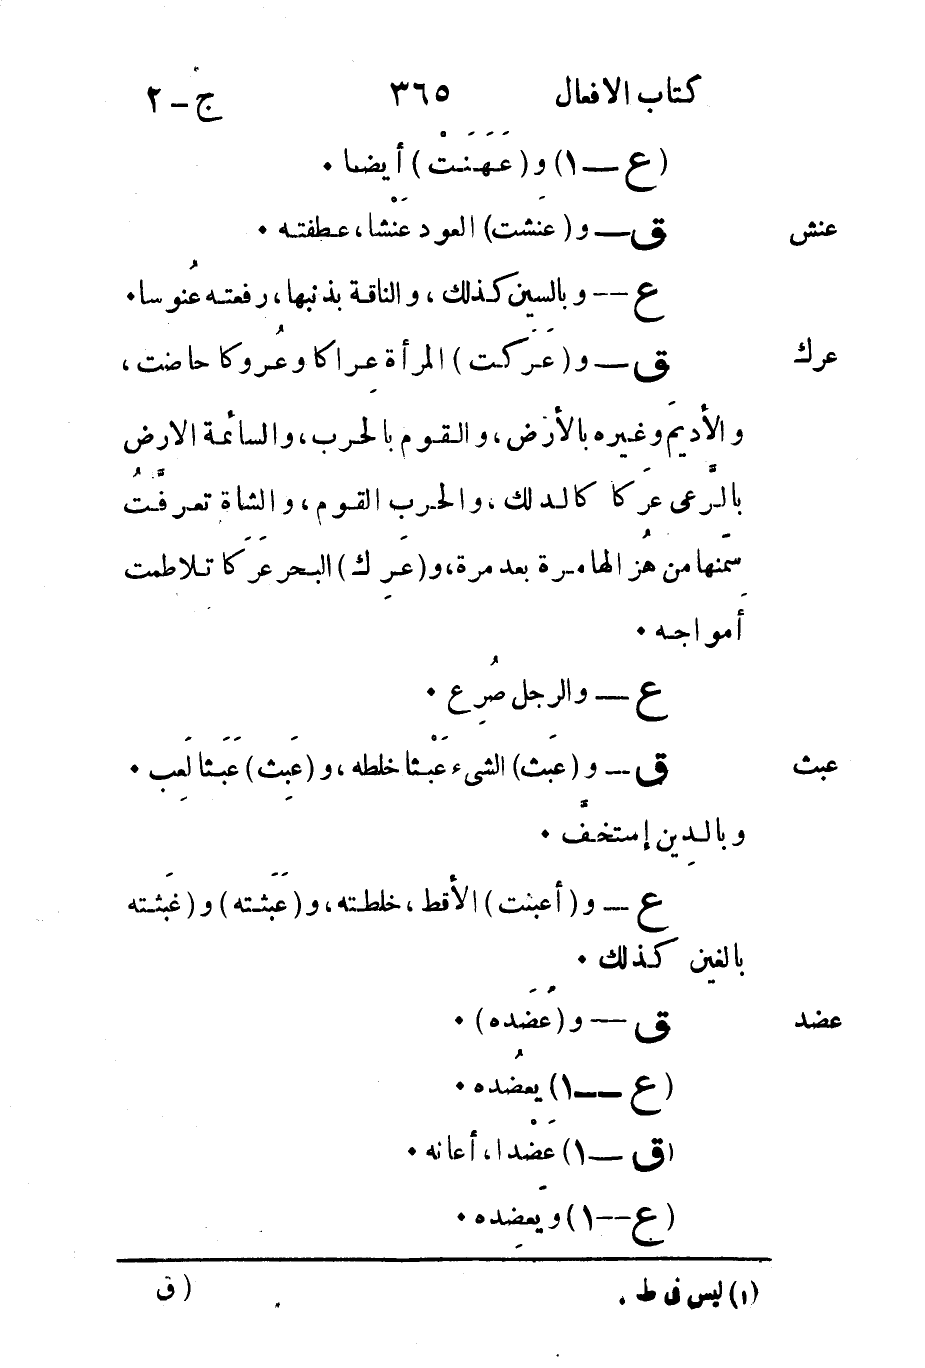 كتاب الافعال ٣٦٥ ج – ٢
(ع — ١) و (عَهَنَتْ) أيضا .
عنش ق — و (عَنشت) العود عَنْشا، عطفته .
ع -- و بالسين كذلك، والناقة بذنبها، رفعته عُنوسا .
عرك ق — و (عَرَكت) المرأة عِراكا و عُروكا حاضت،
والأديمَ وغيره بالأرض، والقوم بالحرب، والسائمة الارض
بالرَّعى عَركا كالدلك، والحرب القوم، والشاة تعرفَّتُ
سِمَنها من هُزالها مرة بعد مرة، و (عَرِك) البحر عَرَكَا تلاطمت
أمواجه .
ع — والرجل صُرِع .
عبث ق — و (عَبث) الشىء عَبْثا خلطه، و (عَبِث) عَبَثا لَعِب .
و بالدِين إستخفَّ .
ع — و (أعبثت) الأقط، خلطته، و (عَبَثته) و (غبَثته
بالغين كذلك .
عضد ق — و (عَضَده) .
(ع — ١) يعضُده .
(ق — ١) عَضْدا، أعانه .
(ع -- ١) و يَعضِده .
(١) ليس فى ط .
(ق